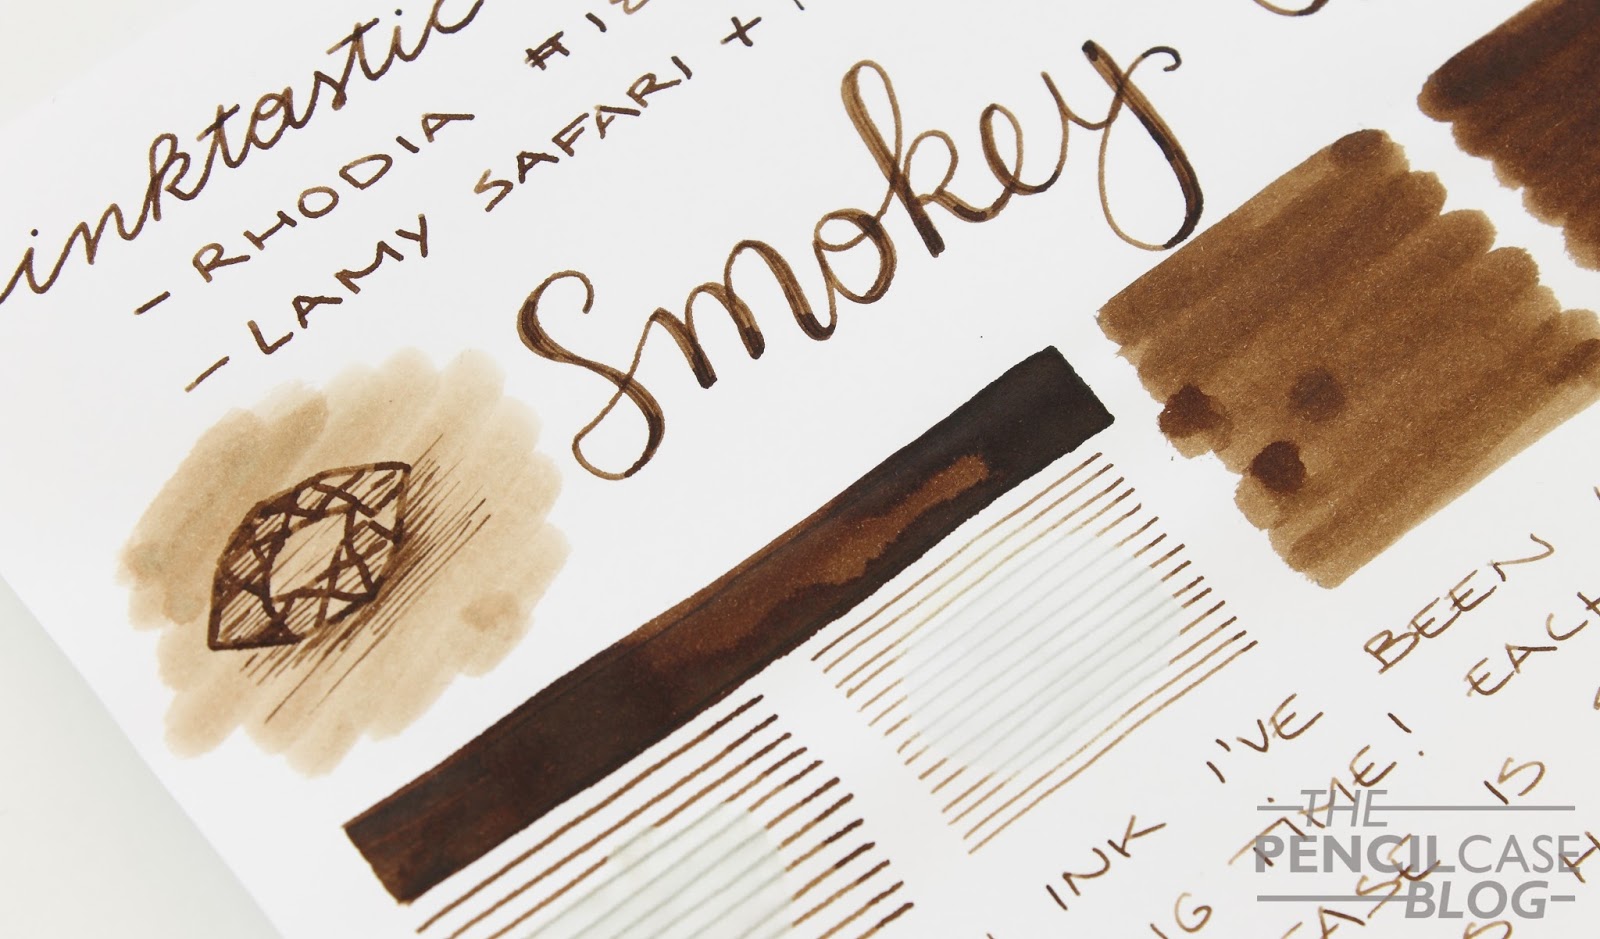 inktastic
- RHODIA #12
- LAMY SAFARI +
Smokey
INK I'VE BEEN
TIME! EACH
IS
THE
PENCILCASE
BLOG